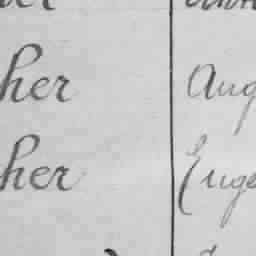 her Aug
her Euge